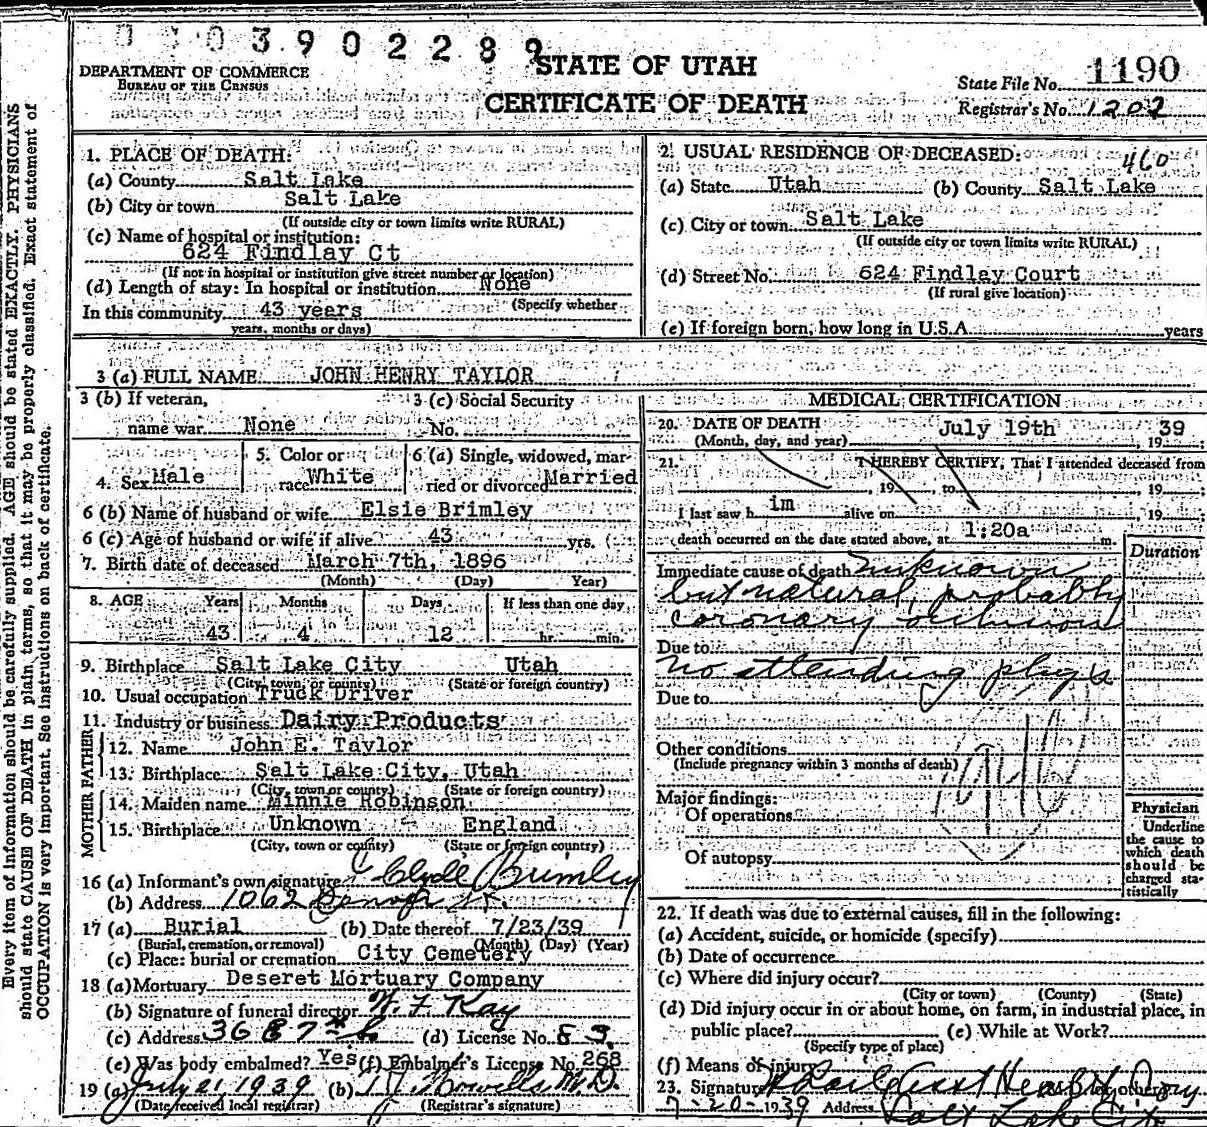 0 3 9 0 2 2 8 9
STATE OF UTAH
CERTIFICATE OF DEATH
DEPARTMENT OF COMMERCE
BUREAU OF THE CENSUS
State File No. 1190
Registrar's No. 1202
Every item of information should be carefully supplied. AGE should be stated EXACTLY. PHYSICIANS
should state CAUSE OF DEATH in plain terms, so that it may be properly classified. Exact statement of
OCCUPATION is very important. See instructions on back of certificate.
1. PLACE OF DEATH:
(a) County Salt Lake
(b) City or town Salt Lake
(If outside city or town limits write RURAL)
(c) Name of hospital or institution:
624 Findlay Ct
(If not in hospital or institution give street number or location)
(d) Length of stay: In hospital or institution None
(Specify whether
In this community 43 years
years, months or days)
2. USUAL RESIDENCE OF DECEASED: 460
(a) State Utah (b) County Salt Lake
(c) City or town Salt Lake
(If outside city or town limits write RURAL)
(d) Street No. 624 Findlay Court
(If rural give location)
(e) If foreign born, how long in U.S.A. years
3 (a) FULL NAME JOHN HENRY TAYLOR
3 (b) If veteran, 3 (c) Social Security
name war None No.
4. Sex Male 5. Color or race White 6 (a) Single, widowed, married or divorced Married
6 (b) Name of husband or wife Elsie Brimley
6 (c) Age of husband or wife if alive 43 yrs.
7. Birth date of deceased March 7th, 1896
(Month) (Day) Year)
8. AGE Years Months Days If less than one day
43 4 12 hr. min.
9. Birthplace Salt Lake City Utah
(City, town, or county) (State or foreign country)
10. Usual occupation Truck Driver
11. Industry or business Dairy Products
FATHER
12. Name John E. Taylor
13. Birthplace Salt Lake City, Utah
(City, town or county) (State or foreign country)
MOTHER
14. Maiden name Minnie Robinson
15. Birthplace Unknown England
(City, town or county) (State or foreign country)
16 (a) Informant's own signature Clyde Brimley
(b) Address 1062
17 (a) Burial (b) Date thereof 7/23/39
(Burial, cremation, or removal) (Month) (Day) (Year)
(c) Place: burial or cremation City Cemetery
18 (a) Mortuary Deseret Mortuary Company
(b) Signature of funeral director W. F. Kay
(c) Address 36 E 7th So (d) License No. 83
(e) Was body embalmed? Yes (f) Embalmer's License No. 268
19 (a) July 21, 1939 (b) M.D.
(Date received local registrar) (Registrar's signature)
MEDICAL CERTIFICATION
20. DATE OF DEATH July 19th, 19 39
(Month, day, and year)
21. I HEREBY CERTIFY, That I attended deceased from
, 19 , to , 19 ;
I last saw h im alive on , 19 ;
death occurred on the date stated above, at 1:20a m.
Duration
Immediate cause of death unknown
but natural, probably
coronary occlusion
Due to
no attending phys
Due to
Other conditions
(Include pregnancy within 3 months of death)
Major findings:
Of operations
Of autopsy
Physician
Underline
the cause to
which death
should be
charged sta-
tistically
22. If death was due to external causes, fill in the following:
(a) Accident, suicide, or homicide (specify)
(b) Date of occurrence
(c) Where did injury occur?
(City or town) (County) (State)
(d) Did injury occur in or about home, on farm, in industrial place, in
public place? (e) While at Work?
(Specify type of place)
(f) Means of injury
23. Signature
7-20-1939 Address Salt Lake City